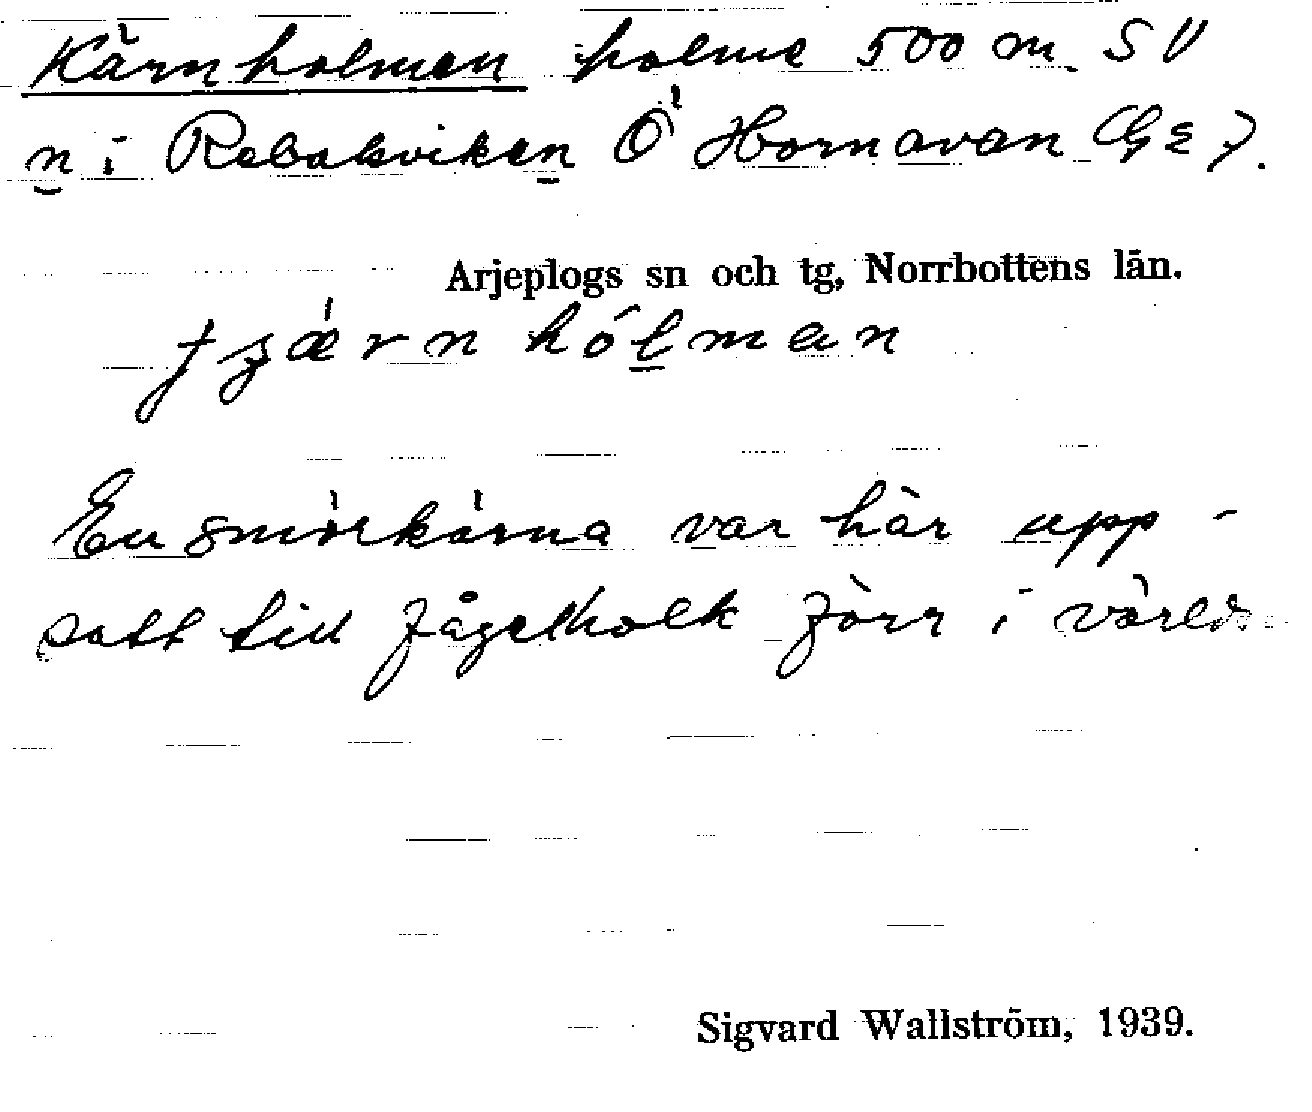 Kärnholmen holme 500 m SV
n i Rebaksviken Ö Hornavan Ge 7.
Arjeplogs sn och tg, Norrbottens län.
hólman
En smörkärna var här upp-
satt till fågelholk förr i världen
Sigvard Wallström, 1939.